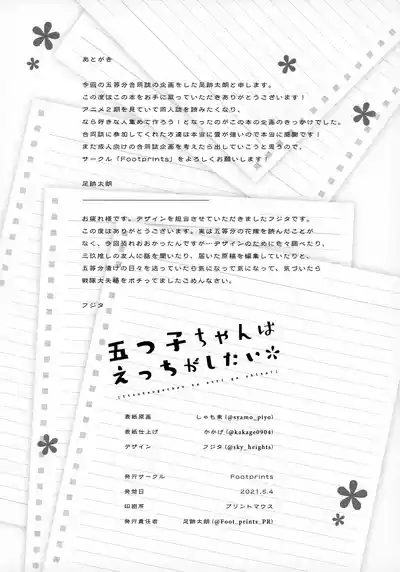 あとがき
今回の五等分合同誌の企画をした足跡太朗と申します。
この度はこの本をお手に取っていただきありがとうございます！
アニメ2期を見ていて同人誌を読みたくなり、
なら好きな人集めて作ろう！となったのがこの本の企画のきっかけでした。
合同誌に参加してくれた方達は本当に愛が強いので本当に感謝です！
また成人向けの合同誌企画を考えたら出していこうと思うので、
サークル「Footprints」をよろしくお願いします！
足跡太朗
お疲れ様です。デザインを担当させていただきましたフジタです。
この度はありがとうございます。実は五等分の花嫁を読んだことが
なく、今回恐れおおかったんですが…デザインのために色々調べたり、
三玖推しの友人に話を聞いたり、届いた原稿を編集していたりと、
五等分漬けの日々を送っていたら気になって気になって、気づいたら
戦隊大失格をポチってましたごめんなさい。
フジタ
五つ子ちゃんは
えっちがしたい
(itsutsugochan ha ecchi ga shitai)
表紙原画 しゃも素(@syamo_piyo)
表紙仕上げ かかげ(@kakage0904)
デザイン フジタ(@sky_heights)
発行サークル Footprints
発行日 2021.5.4
印刷所 プリントマウス
発行責任者 足跡太朗(@Foot_prints_PR)